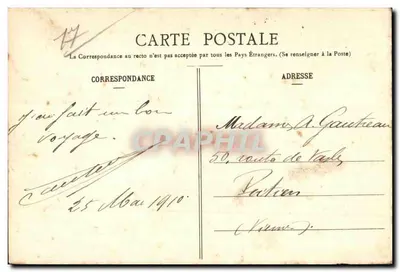 17
CARTE POSTALE
La Correspondance au recto n'est pas acceptée par tous les Pays Étrangers. (Se renseigner à la Poste)
CORRESPONDANCE
J'ai fait un bon
voyage.
25 Mai 1910
ADRESSE
Madame A. Gautreau
50, route de
(Vienne).
CPAPHIL